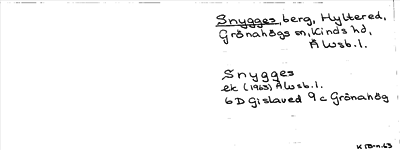 Snygges, berg, Hyltered,
Grönahögs sn, Kinds hd,
Älvsb. l.
Snygges
ek (1963) Älvsb. l.
6D Gislaved 9c Grönahög